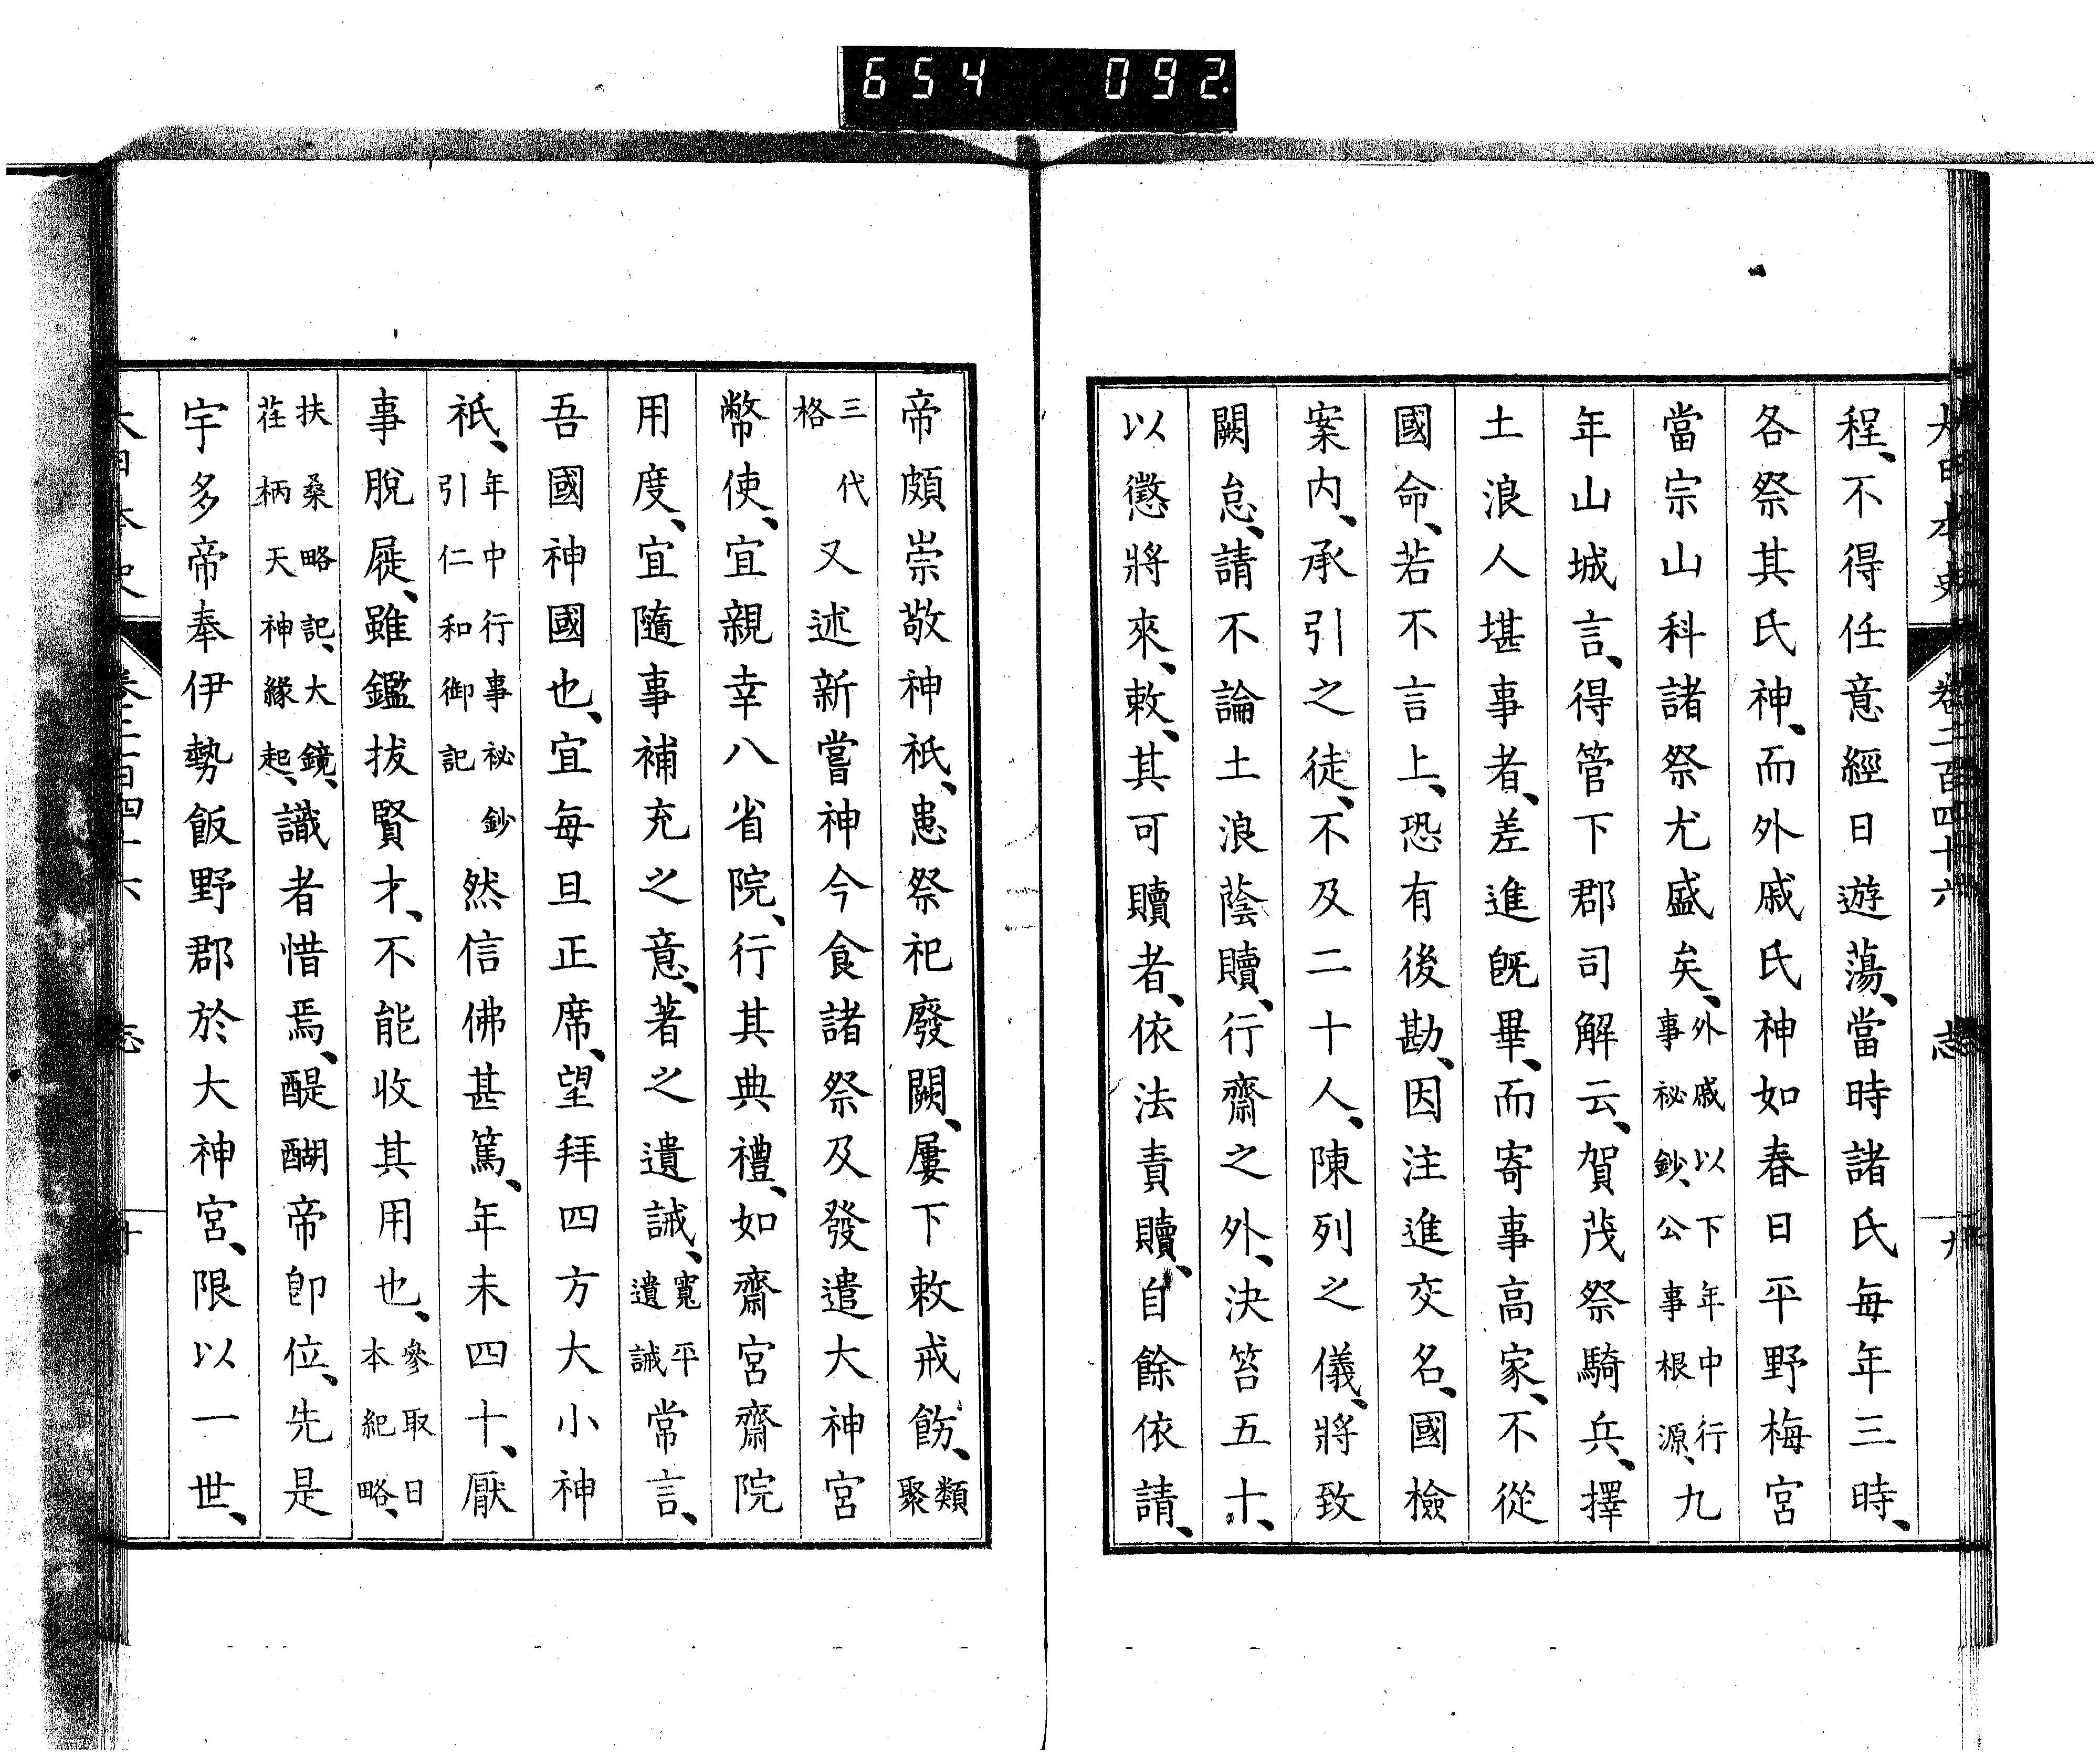 654 092
大日本史 卷二百四十六 志 九
程、不得任意經日遊蕩、當時諸氏每年三時、
各祭其氏神、而外戚氏神如春日平野梅宮
當宗山科諸祭尤盛矣、外戚以下年中行事秘鈔、公事根源、九
年山城言、得管下郡司解云、賀茂祭騎兵、擇
土浪人堪事者、差進既畢、而寄事高家、不從
國命、若不言上、恐有後勘、因注進交名、國檢
案內、承引之徒、不及二十人、陳列之儀、將致
闕怠、請不論土浪蔭贖、行齋之外、決笞五十、
以懲將來、敕、其可贖者、依法責贖、自餘依請、
帝頗崇敬神祇、患祭祀廢闕、屢下敕戒飭、類聚
三代格又述新嘗神今食諸祭及發遣大神宮
幣使、宜親幸八省院、行其典禮、如齋宮齋院
用度、宜隨事補充之意、著之遺誡、寬平遺誡常言、
吾國神國也、宜每旦正席、望拜四方大小神
祇、年中行事秘鈔引仁和御記然信佛甚篤、年未四十、厭
事脫屣、雖鑑拔賢才、不能收其用也、參取日本紀略、
扶桑略記、大鏡、荏柄天神緣起、識者惜焉、醍醐帝卽位、先是
宇多帝奉伊勢飯野郡於大神宮、限以一世、
大日本史 卷二百四十六 志 十